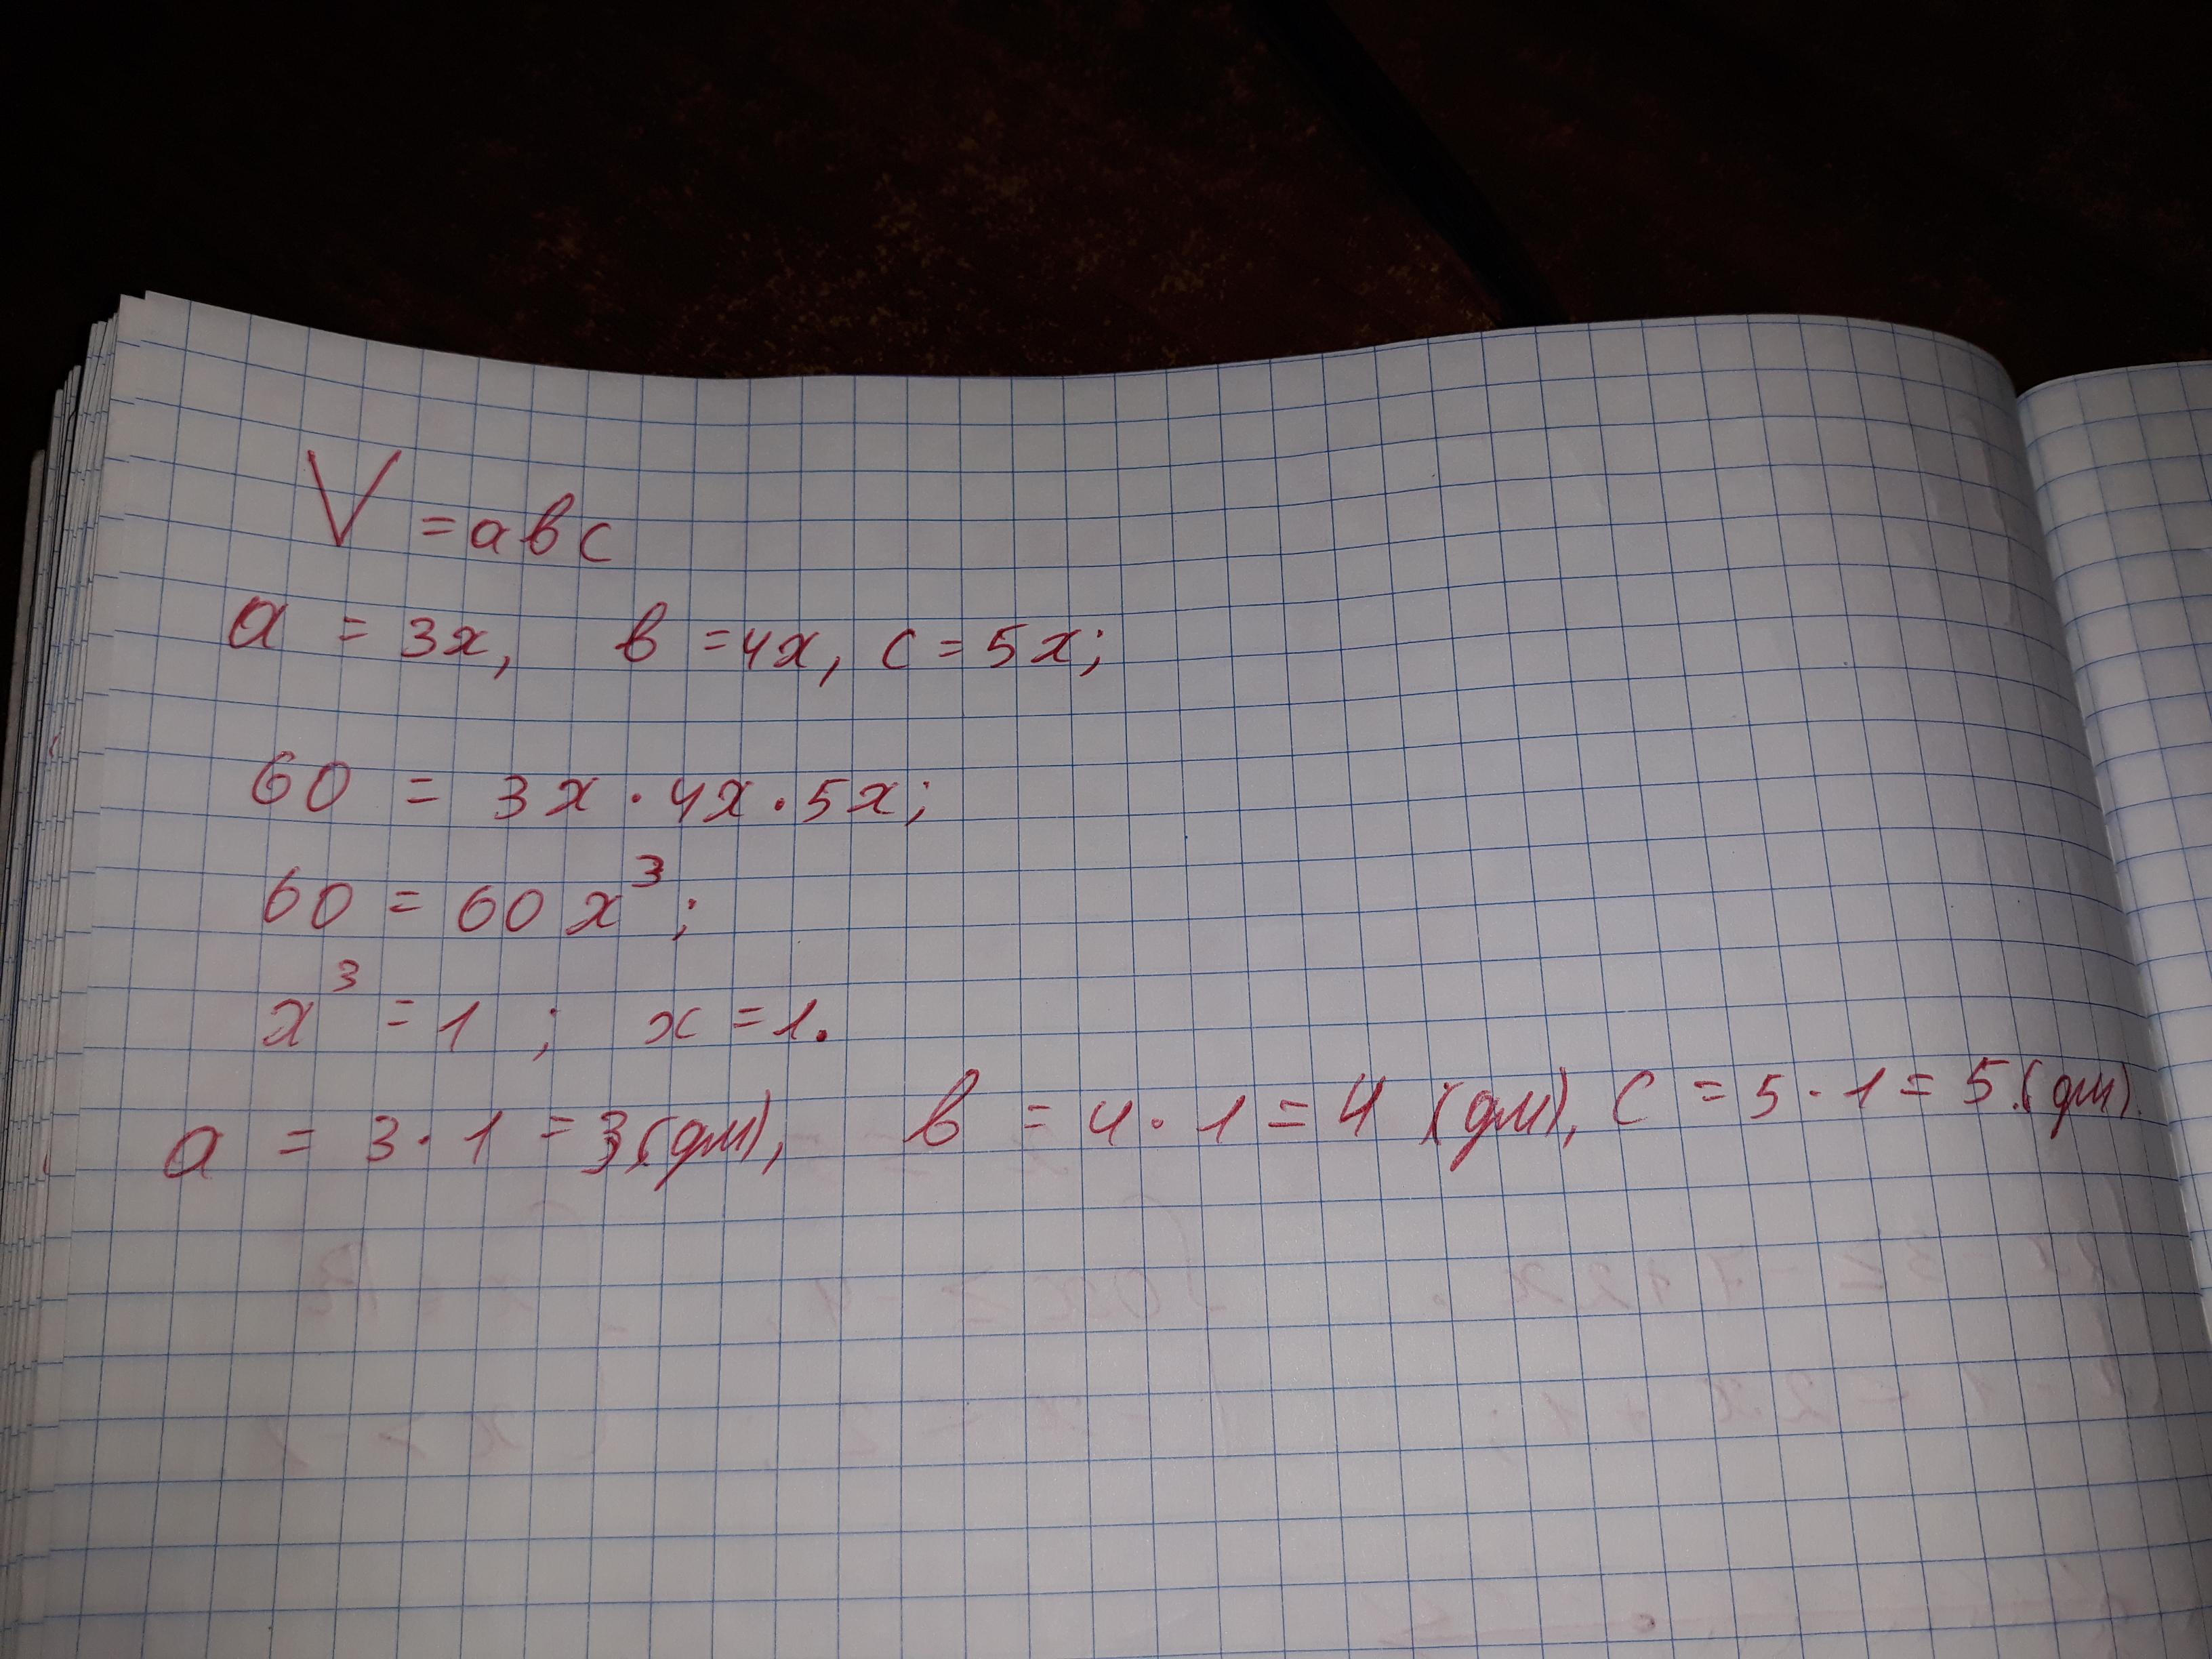 V = aвc
a = 3x, в = 4x, c = 5x;
60 = 3x · 4x · 5x;
60 = 60x³;
x³ = 1 ; x = 1.
a = 3 · 1 = 3 (дм), в = 4 · 1 = 4 (дм), c = 5 · 1 = 5 (дм).